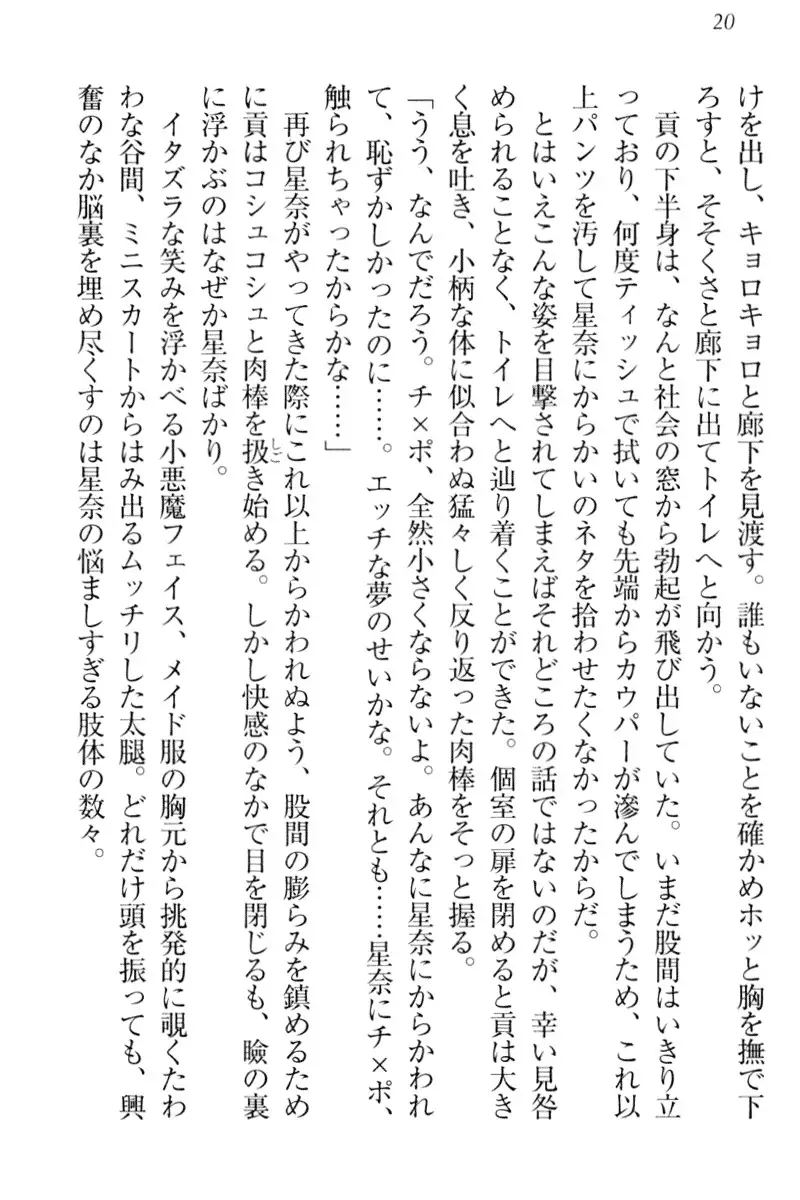 20
けを出し、キョロキョロと廊下を見渡す。誰もいないことを確かめホッと胸を撫で下
ろすと、そそくさと廊下に出てトイレへと向かう。
貢の下半身は、なんと社会の窓から勃起が飛び出していた。いまだ股間はいきり立
っており、何度ティッシュで拭いても先端からカウパーが滲んでしまうため、これ以
上パンツを汚して星奈にからかいのネタを拾わせたくなかったからだ。
とはいえこんな姿を目撃されてしまえばそれどころの話ではないのだが、幸い見咎
められることなく、トイレへと辿り着くことができた。個室の扉を閉めると貢は大き
く息を吐き、小柄な体に似合わぬ猛々しく反り返った肉棒をそっと握る。
「うう、なんでだろう。チ×ポ、全然小さくならないよ。あんなに星奈にからかわれ
て、恥ずかしかったのに……。エッチな夢のせいかな。それとも……星奈にチ×ポ、
触られちゃったからかな……」
再び星奈がやってきた際にこれ以上からかわれぬよう、股間の膨らみを鎮めるため
に貢はコシュコシュと肉棒を扱き始める。しかし快感のなかで目を閉じるも、瞼の裏
しご
に浮かぶのはなぜか星奈ばかり。
イタズラな笑みを浮かべる小悪魔フェイス、メイド服の胸元から挑発的に覗くたわ
わな谷間、ミニスカートからはみ出るムッチリした太腿。どれだけ頭を振っても、興
奮のなか脳裏を埋め尽くすのは星奈の悩ましすぎる肢体の数々。